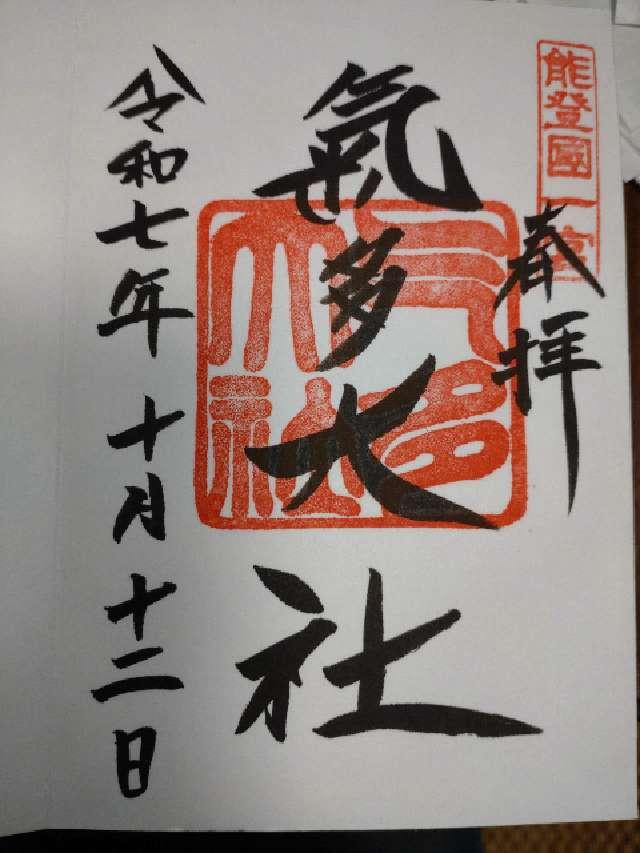 能登國一宮
奉拝
氣多大社
气多大社
令和七年十月十二日